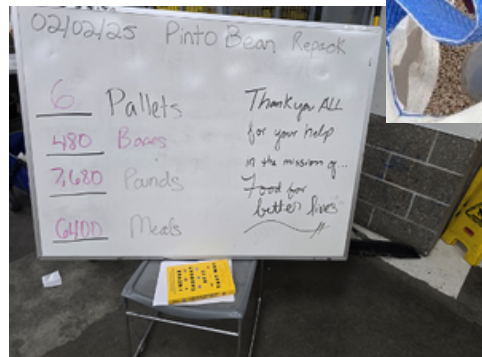 02/02/25 Pinto Bean Repack
6 Pallets
480 Boxes
7,680 Pounds
6400 Meals
Thank you ALL
for your help
in the mission of...
Food for
better lives